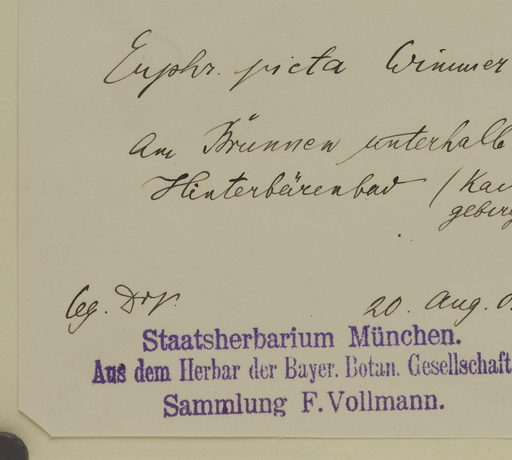 Euphr. picta Wimmer
Am Brünnen unterhalb
Hinterbärenbad / Kai
gebirg
leg.
20. Aug. 0
Staatsherbarium München.
Aus dem Herbar der Bayer. Botan. Gesellschaft
Sammlung F. Vollmann.